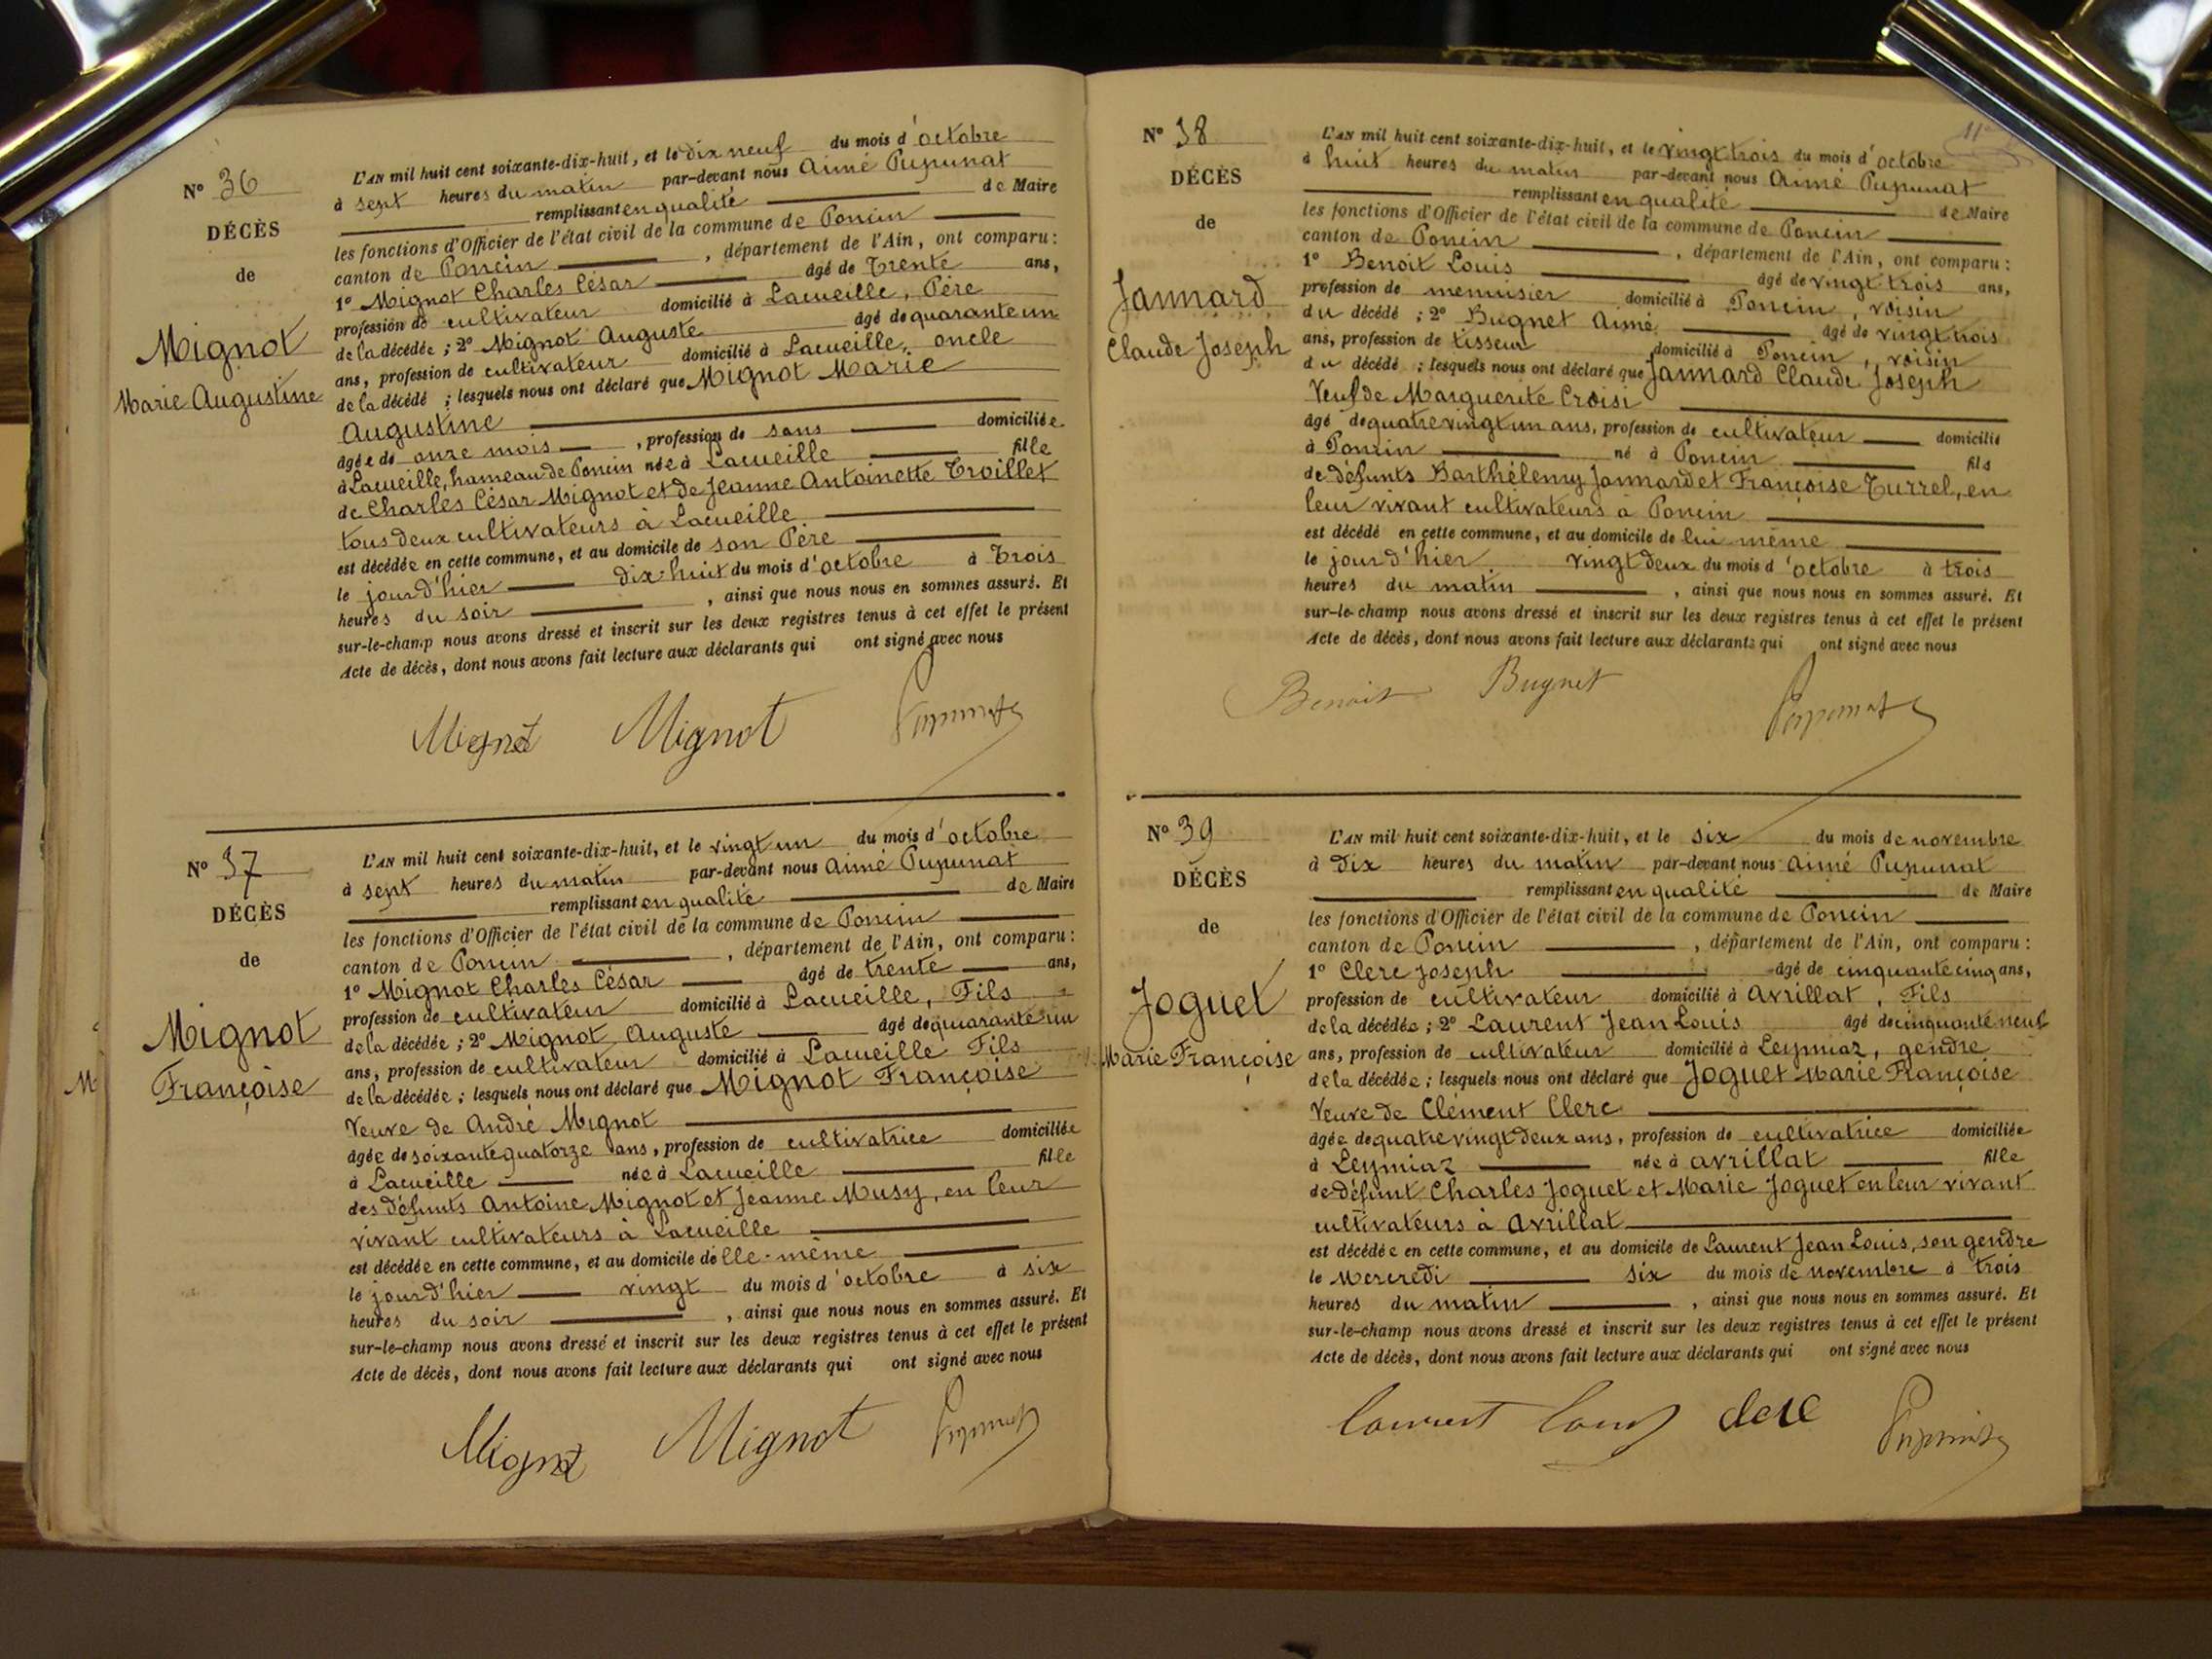 N° 36
DÉCÈS
de
Mignot
Marie Augustine
L'AN mil huit cent soixante-dix-huit, et le dix neuf du mois d'octobre
à sept heures du matin par-devant nous Aimé Pupunat
remplissant en qualité de Maire
les fonctions d'Officier de l'état civil de la commune de Poncin
canton de Poncin, département de l'Ain, ont comparu :
1° Mignot Charles César âgé de Trente ans,
profession de cultivateur domicilié à Lacueille, Père
de la décédée ; 2° Mignot Auguste âgé de quarante un
ans, profession de cultivateur domicilié à Lacueille, oncle
de la décédé ; lesquels nous ont déclaré que Mignot Marie
Augustine
âgée de onze mois, profession de sans domiciliée
à Lacueille, hameau de Poncin née à Lacueille fille
de Charles César Mignot et de Jeanne Antoinette Troillet
tous deux cultivateurs à Lacueille
est décédée en cette commune, et au domicile de son Père
le jour d'hier dix-huit du mois d'octobre à Trois
heures du soir, ainsi que nous nous en sommes assuré. Et
sur-le-champ nous avons dressé et inscrit sur les deux registres tenus à cet effet le présent
Acte de décès, dont nous avons fait lecture aux déclarants qui ont signé avec nous
Mignot Mignot Pupunat
N° 37
DÉCÈS
de
Mignot
Françoise
M
L'AN mil huit cent soixante-dix-huit, et le vingt un du mois d'octobre
à sept heures du matin par-devant nous Aimé Pupunat
remplissant en qualité de Maire
les fonctions d'Officier de l'état civil de la commune de Poncin
canton de Poncin, département de l'Ain, ont comparu :
1° Mignot Charles César âgé de trente ans,
profession de cultivateur domicilié à Lacueille, Fils
de la décédée ; 2° Mignot Auguste âgé de quarante un
ans, profession de cultivateur domicilié à Lacueille Fils
de la décédée ; lesquels nous ont déclaré que Mignot Françoise
Veuve de André Mignot
âgée de soixante quatorze ans, profession de cultivatrice domiciliée
à Lacueille née à Lacueille fille
des défunts Antoine Mignot et Jeanne Musy, en leur
vivant cultivateurs à Lacueille
est décédée en cette commune, et au domicile delle-même
le jour d'hier vingt du mois d'octobre à six
heures du soir, ainsi que nous nous en sommes assuré. Et
sur-le-champ nous avons dressé et inscrit sur les deux registres tenus à cet effet le présent
Acte de décès, dont nous avons fait lecture aux déclarants qui ont signé avec nous
Mignot Mignot Pupunat
N° 38
DÉCÈS
de
Jannard
Claude Joseph
L'AN mil huit cent soixante-dix-huit, et le vingt trois du mois d'octobre
à huit heures du matin par-devant nous Aimé Pupunat
remplissant en qualité de Maire
les fonctions d'Officier de l'état civil de la commune de Poncin
canton de Poncin, département de l'Ain, ont comparu :
1° Benoit Louis âgé de vingt trois ans,
profession de menuisier domicilié à Poncin, voisin
du décédé ; 2° Bugnet Aimé âgé de vingt trois
ans, profession de tisseur domicilié à Poncin, voisin
du décédé ; lesquels nous ont déclaré que Jannard Claude Joseph
Veuf de Marguerite Croisi
âgé de quatre vingt un ans, profession de cultivateur domicilié
à Poncin né à Poncin fils
de défunts Barthélemy Jannard et Françoise Turrel, en
leur vivant cultivateurs à Poncin
est décédé en cette commune, et au domicile de lui même
le jour d'hier vingt deux du mois d'octobre à trois
heures du matin, ainsi que nous nous en sommes assuré. Et
sur-le-champ nous avons dressé et inscrit sur les deux registres tenus à cet effet le présent
Acte de décès, dont nous avons fait lecture aux déclarants qui ont signé avec nous
Benoit Bugnet Pupunat
N° 39
DÉCÈS
de
Joguet
Marie Françoise
L'AN mil huit cent soixante-dix-huit, et le six du mois de novembre
à Dix heures du matin par-devant nous Aimé Pupunat
remplissant en qualité de Maire
les fonctions d'Officier de l'état civil de la commune de Poncin
canton de Poncin, département de l'Ain, ont comparu :
1° Clerc Joseph âgé de cinquante cinq ans,
profession de cultivateur domicilié à Avrillat, Fils
de la décédée ; 2° Laurent Jean Louis âgé de cinquante neuf
ans, profession de cultivateur domicilié à Leymiaz, gendre
de la décédée ; lesquels nous ont déclaré que Joguet Marie Françoise
Veuve de Clément Clerc
âgée de quatre vingt deux ans, profession de cultivatrice domiciliée
à Leymiaz née à Avrillat fille
de défunt Charles Joguet et Marie Joguet en leur vivant
cultivateurs à Avrillat
est décédée en cette commune, et au domicile de Laurent Jean Louis, son gendre
le Mercredi six du mois de novembre à trois
heures du matin, ainsi que nous nous en sommes assuré. Et
sur-le-champ nous avons dressé et inscrit sur les deux registres tenus à cet effet le présent
Acte de décès, dont nous avons fait lecture aux déclarants qui ont signé avec nous
Laurent Louis clerc Pupunat